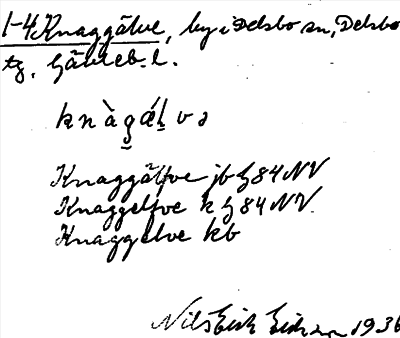 1-4 Knaggälve, by i Delsbo sn, Delsbo
tg. Gävleb. l.
knàgǽlvə
Knaggälfve jb ɧ 84 NV
Knaggelfve k ɧ 84 NV.
Knaggelve kb
Nils Erik 1936